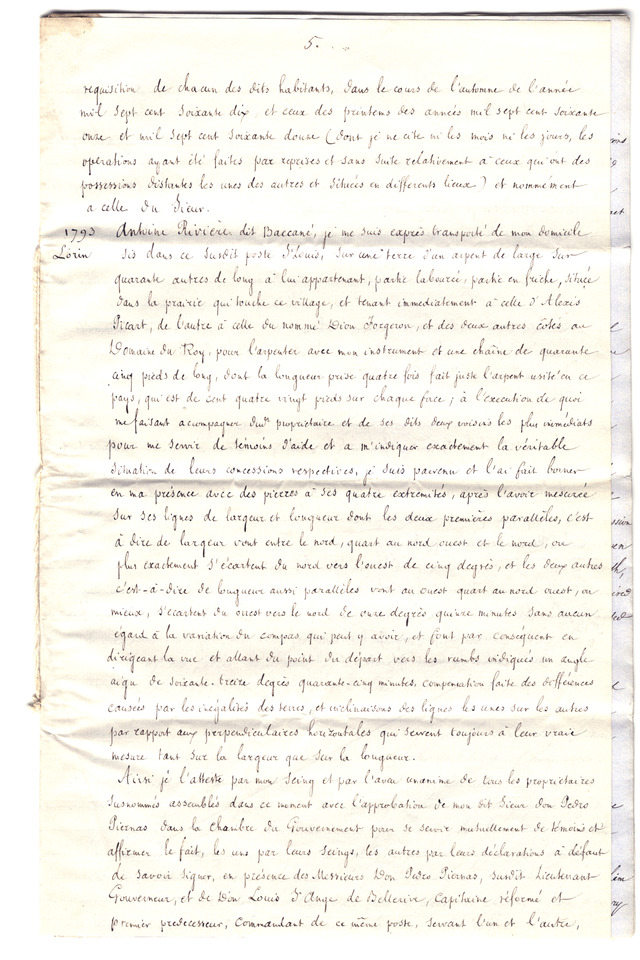 5.
requisition de chacun des dits habitants, dans le cours de l'automne de l'année
mil sept cent soixante dix, et ceux des printems des années mil sept cent soixante
onze et mil sept cent soixante douze (dont je ne cite ni les mois ni les jours, les
operations ayant été faites par reprises et sans suite relativement à ceux qui ont des
possessions distantes les unes des autres et situées en differents lieux) et nommément
a celle du Sieur.
1793 Antoine Riviere dit Baccané, je me suis exprès transporté de mon domicile
Lorin sis dans ce susdit poste St Louis, sur une terre d'un arpent de large sur
quarante autres de long à lui appartenant, partie labourée, partie en friche, située
dans la prairie qui touche ce village, et tenant immediatement à celle d'Alexis
Picart, de l'autre à celle du nommé Dion Forgeron, et des deux autres côtés au
Domaine du Roy, pour l'arpenter avec mon instrument et une chaine de quarante
cinq pieds de long, dont la longueur prise quatre fois fait juste l'arpent usité en ce
pays, qui est de cent quatre vingt pieds sur chaque face; à l'execution de quoi
me faisant accompagner du proprietaire et de ses dits deux voisins les plus immédiats
pour me servir de témoins d'aide et a m'indiquer exactement la véritable
situation de leurs concessions respectives, je suis parvenu et l'ai fait borner
en ma présence avec des pierres à ses quatre extremités, après l'avoir mesurée
sur ses lignes de largeur et longueur dont les deux premières parallèles, c'est
à dire de largeur vont entre le nord, quart au nord ouest et le nord, ou
plus exactement s'écartent du nord vers l'ouest de cinq degrés, et les deux autres
c'est-à-dire de longueur aussi parallèles vont au ouest quart au nord ouest, ou
mieux, s'écartent du ouest vers le nord de onze degrés quinze minutes sans aucun
égard à la variation du compas qui peut y avoir, et font par conséquent en
dirigeant la vue et allant du point du départ vers les rumbs indiqués un angle
aigu de soixante-treize degrés quarante-cinq minutes, compensation faite des différences
causées par les inégalités des terres, et inclinaisons des lignes les unes sur les autres
par rapport aux perpendiculaires horizontales qui servent toujours à leur vraie
mesure tant sur la largeur que sur la longueur.
Ainsi je l'atteste par mon seing et par l'aveu unanime de tous les proprietaires
susnommés assemblés dans ce moment avec l'approbation de mon dit Sieur don Pedro
Piernas dans la chambre du Gouvernement pour se servir mutuellement de témoins et
affirmer le fait, les uns par leurs seings, les autres par leurs déclarations à défaut
de savoir signer, en présence des Messieurs Don Pedro Piernas, susdit Lieutenant
Gouverneur, et de Don Louis St Ange de Bellerive, Capitaine réformé et
premier predecesseur, Commandant de ce même poste, servant l'un et l'autre,